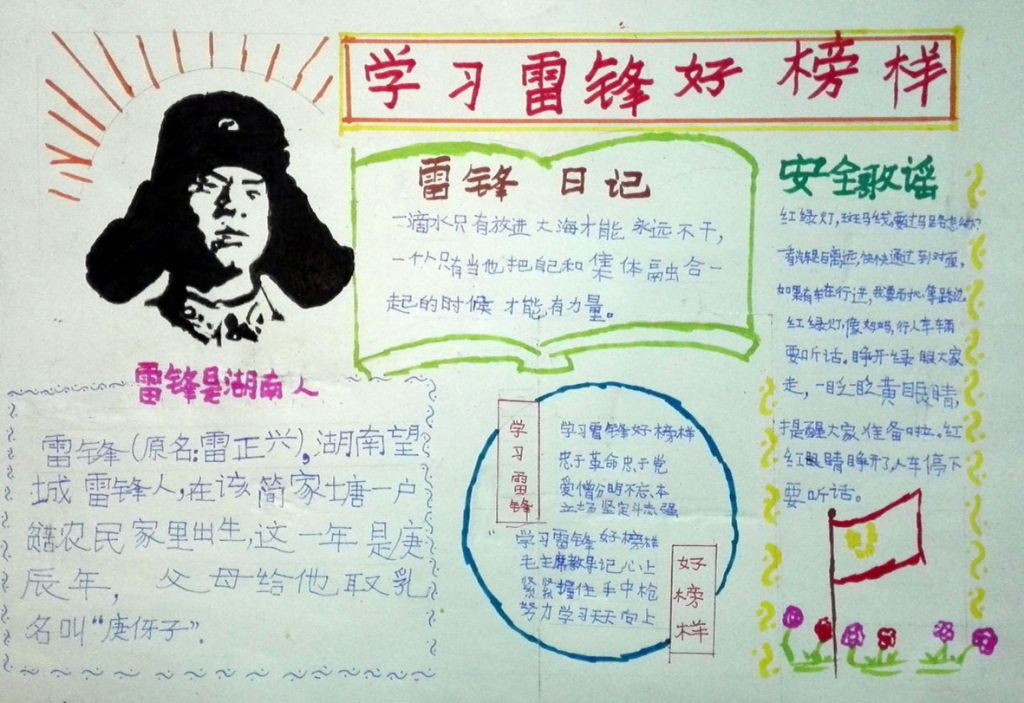 学习雷锋好榜样
雷锋 日记
一滴水只有放进大海才能永远不干,
一个人只有当他把自己和集体融合一
起的时候才能有力量。
安全歌谣
红绿灯,斑马线,要过马路怎么办?
看清是白离远,快快通过到对面,
如果有车在行进,我要
红绿灯,像妈妈,行人车辆
要听话。睁开绿眼大家
走,一眨一眨黄眼睛,
提醒大家准备啦。红
红眼睛睁开了,人车停下
要听话。
雷锋是湖南人
雷锋(原名:雷正兴),湖南望
城雷锋人,在该简家塘一户
农民家里出生,这一年是庚
辰年,父母给他取乳
名叫“庚伢子”.
学习雷锋
学习雷锋好榜样
忠于革命忠于党
爱憎分明不忘本
立场坚定斗志强
学习雷锋好榜样
毛主席教导记心上
紧紧握住手中枪
努力学习天天向上
好榜样